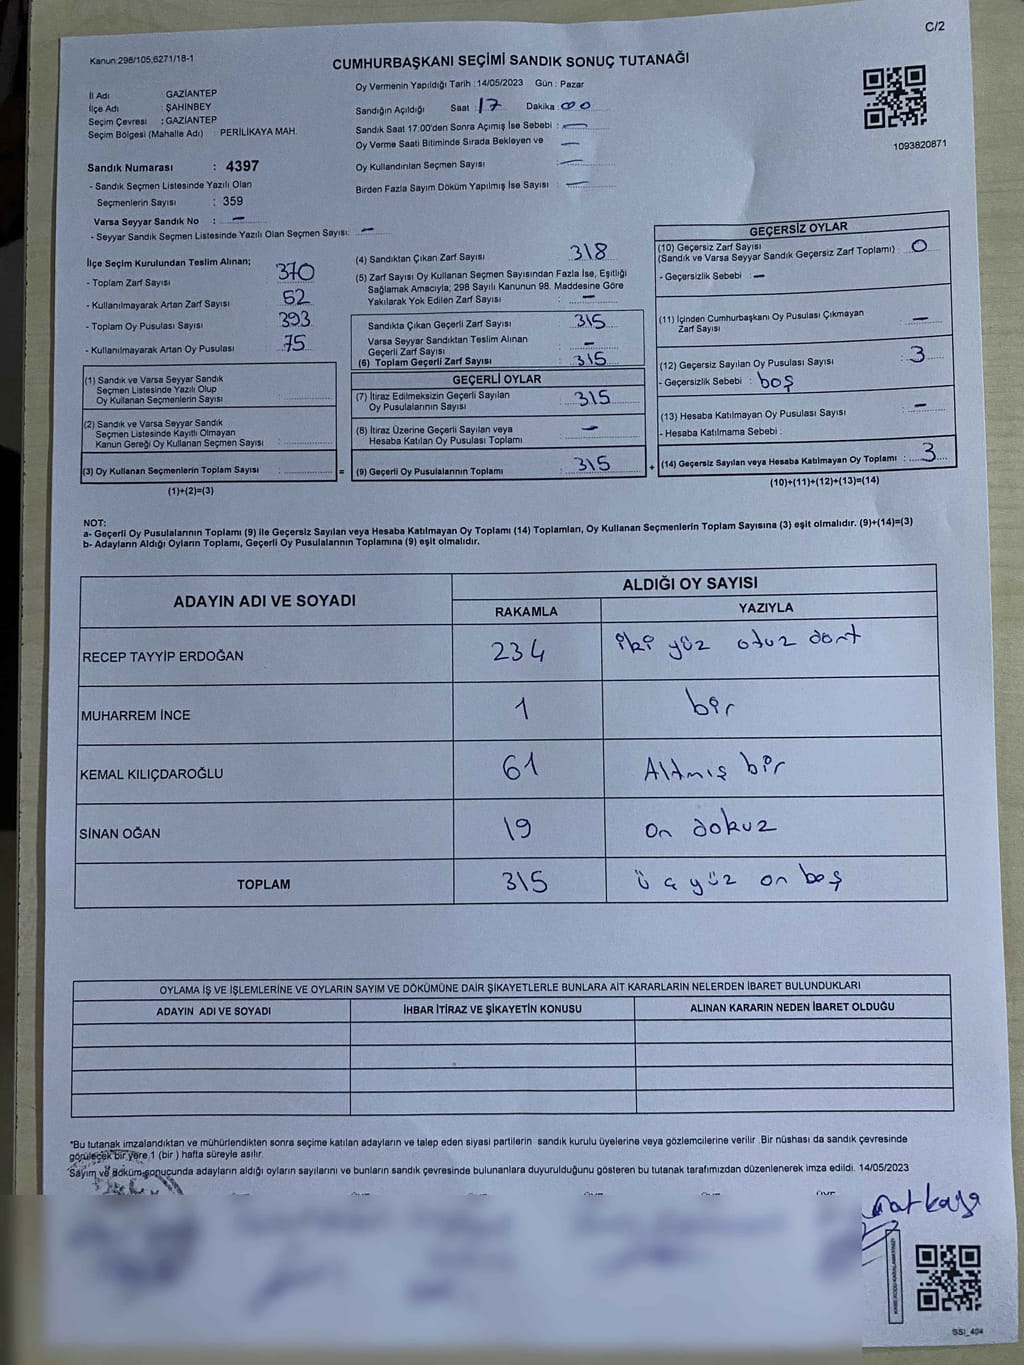 C/2
Kanun:298/105,6271/18-1
CUMHURBAŞKANI SEÇİMİ SANDIK SONUÇ TUTANAĞI
İl Adı : GAZİANTEP
İlçe Adı : ŞAHİNBEY
Seçim Çevresi : GAZİANTEP
Seçim Bölgesi (Mahalle Adı) : PERİLİKAYA MAH.
Oy Vermenin Yapıldığı Tarih :14/05/2023 Gün : Pazar
Sandığın Açıldığı Saat : 17 Dakika : 00
Sandık Saat 17:00'den Sonra Açımış İse Sebebi : —
Oy Verme Saati Bitiminde Sırada Bekleyen ve —
Oy Kullandırılan Seçmen Sayısı : —
Birden Fazla Sayım Döküm Yapılmış İse Sayısı : —
1093820871
Sandık Numarası : 4397
- Sandık Seçmen Listesinde Yazılı Olan
Seçmenlerin Sayısı : 359
Varsa Seyyar Sandık No : —
- Seyyar Sandık Seçmen Listesinde Yazılı Olan Seçmen Sayısı: —
İlçe Seçim Kurulundan Teslim Alınan;
- Toplam Zarf Sayısı : 370
- Kullanılmayarak Artan Zarf Sayısı : 52
- Toplam Oy Pusulası Sayısı : 393
- Kullanılmayarak Artan Oy Pusulası : 75
(1) Sandık ve Varsa Seyyar Sandık
Seçmen Listesinde Yazılı Olup
Oy Kullanan Seçmenlerin Sayısı :
(2) Sandık ve Varsa Seyyar Sandık
Seçmen Listesinde Kayıtlı Olmayan
Kanun Gereği Oy Kullanan Seçmen Sayısı :
(3) Oy Kullanan Seçmenlerin Toplam Sayısı :
(1)+(2)=(3)
(4) Sandıktan Çıkan Zarf Sayısı : 318
(5) Zarf Sayısı Oy Kullanan Seçmen Sayısından Fazla İse, Eşitliği
Sağlamak Amacıyla; 298 Sayılı Kanunun 98. Maddesine Göre
Yakılarak Yok Edilen Zarf Sayısı : —
Sandıkta Çıkan Geçerli Zarf Sayısı : 315
Varsa Seyyar Sandıktan Teslim Alınan
Geçerli Zarf Sayısı : —
(6) Toplam Geçerli Zarf Sayısı : 315
GEÇERLİ OYLAR
(7) İtiraz Edilmeksizin Geçerli Sayılan
Oy Pusulalarının Sayısı : 315
(8) İtiraz Üzerine Geçerli Sayılan veya
Hesaba Katılan Oy Pusulası Toplamı : —
= (9) Geçerli Oy Pusulalarının Toplamı : 315
GEÇERSİZ OYLAR
(10) Geçersiz Zarf Sayısı
(Sandık ve Varsa Seyyar Sandık Geçersiz Zarf Toplamı) : 0
- Geçersizlik Sebebi : —
(11) İçinden Cumhurbaşkanı Oy Pusulası Çıkmayan
Zarf Sayısı : —
(12) Geçersiz Sayılan Oy Pusulası Sayısı : 3
- Geçersizlik Sebebi : boş
(13) Hesaba Katılmayan Oy Pusulası Sayısı : —
- Hesaba Katılmama Sebebi :
+ (14) Geçersiz Sayılan veya Hesaba Katılmayan Oy Toplamı : 3
(10)+(11)+(12)+(13)=(14)
NOT:
a- Geçerli Oy Pusulalarının Toplamı (9) ile Geçersiz Sayılan veya Hesaba Katılmayan Oy Toplamı (14) Toplamları, Oy Kullanan Seçmenlerin Toplam Sayısına (3) eşit olmalıdır. (9)+(14)=(3)
b- Adayların Aldığı Oyların Toplamı, Geçerli Oy Pusulalarının Toplamına (9) eşit olmalıdır.
ADAYIN ADI VE SOYADI
ALDIĞI OY SAYISI
RAKAMLA YAZIYLA
RECEP TAYYİP ERDOĞAN 234 iki yüz otuz dört
MUHARREM İNCE 1 bir
KEMAL KILIÇDAROĞLU 61 Altmış bir
SİNAN OĞAN 19 on dokuz
TOPLAM 315 üç yüz on beş
OYLAMA İŞ VE İŞLEMLERİNE VE OYLARIN SAYIM VE DÖKÜMÜNE DAİR ŞİKAYETLERLE BUNLARA AİT KARARLARIN NELERDEN İBARET BULUNDUKLARI
ADAYIN ADI VE SOYADI İHBAR İTİRAZ VE ŞİKAYETİN KONUSU ALINAN KARARIN NEDEN İBARET OLDUĞU
*Bu tutanak imzalandıktan ve mühürlendikten sonra seçime katılan adayların ve talep eden siyasi partilerin sandık kurulu üyelerine veya gözlemcilerine verilir .Bir nüshası da sandık çevresinde
görülecek bir yere 1 (bir ) hafta süreyle asılır.
Sayım ve döküm sonucunda adayların aldığı oyların sayılarını ve bunların sandık çevresinde bulunanlara duyurulduğunu gösteren bu tutanak tarafımızdan düzenlenerek imza edildi. 14/05/2023
SSI_404